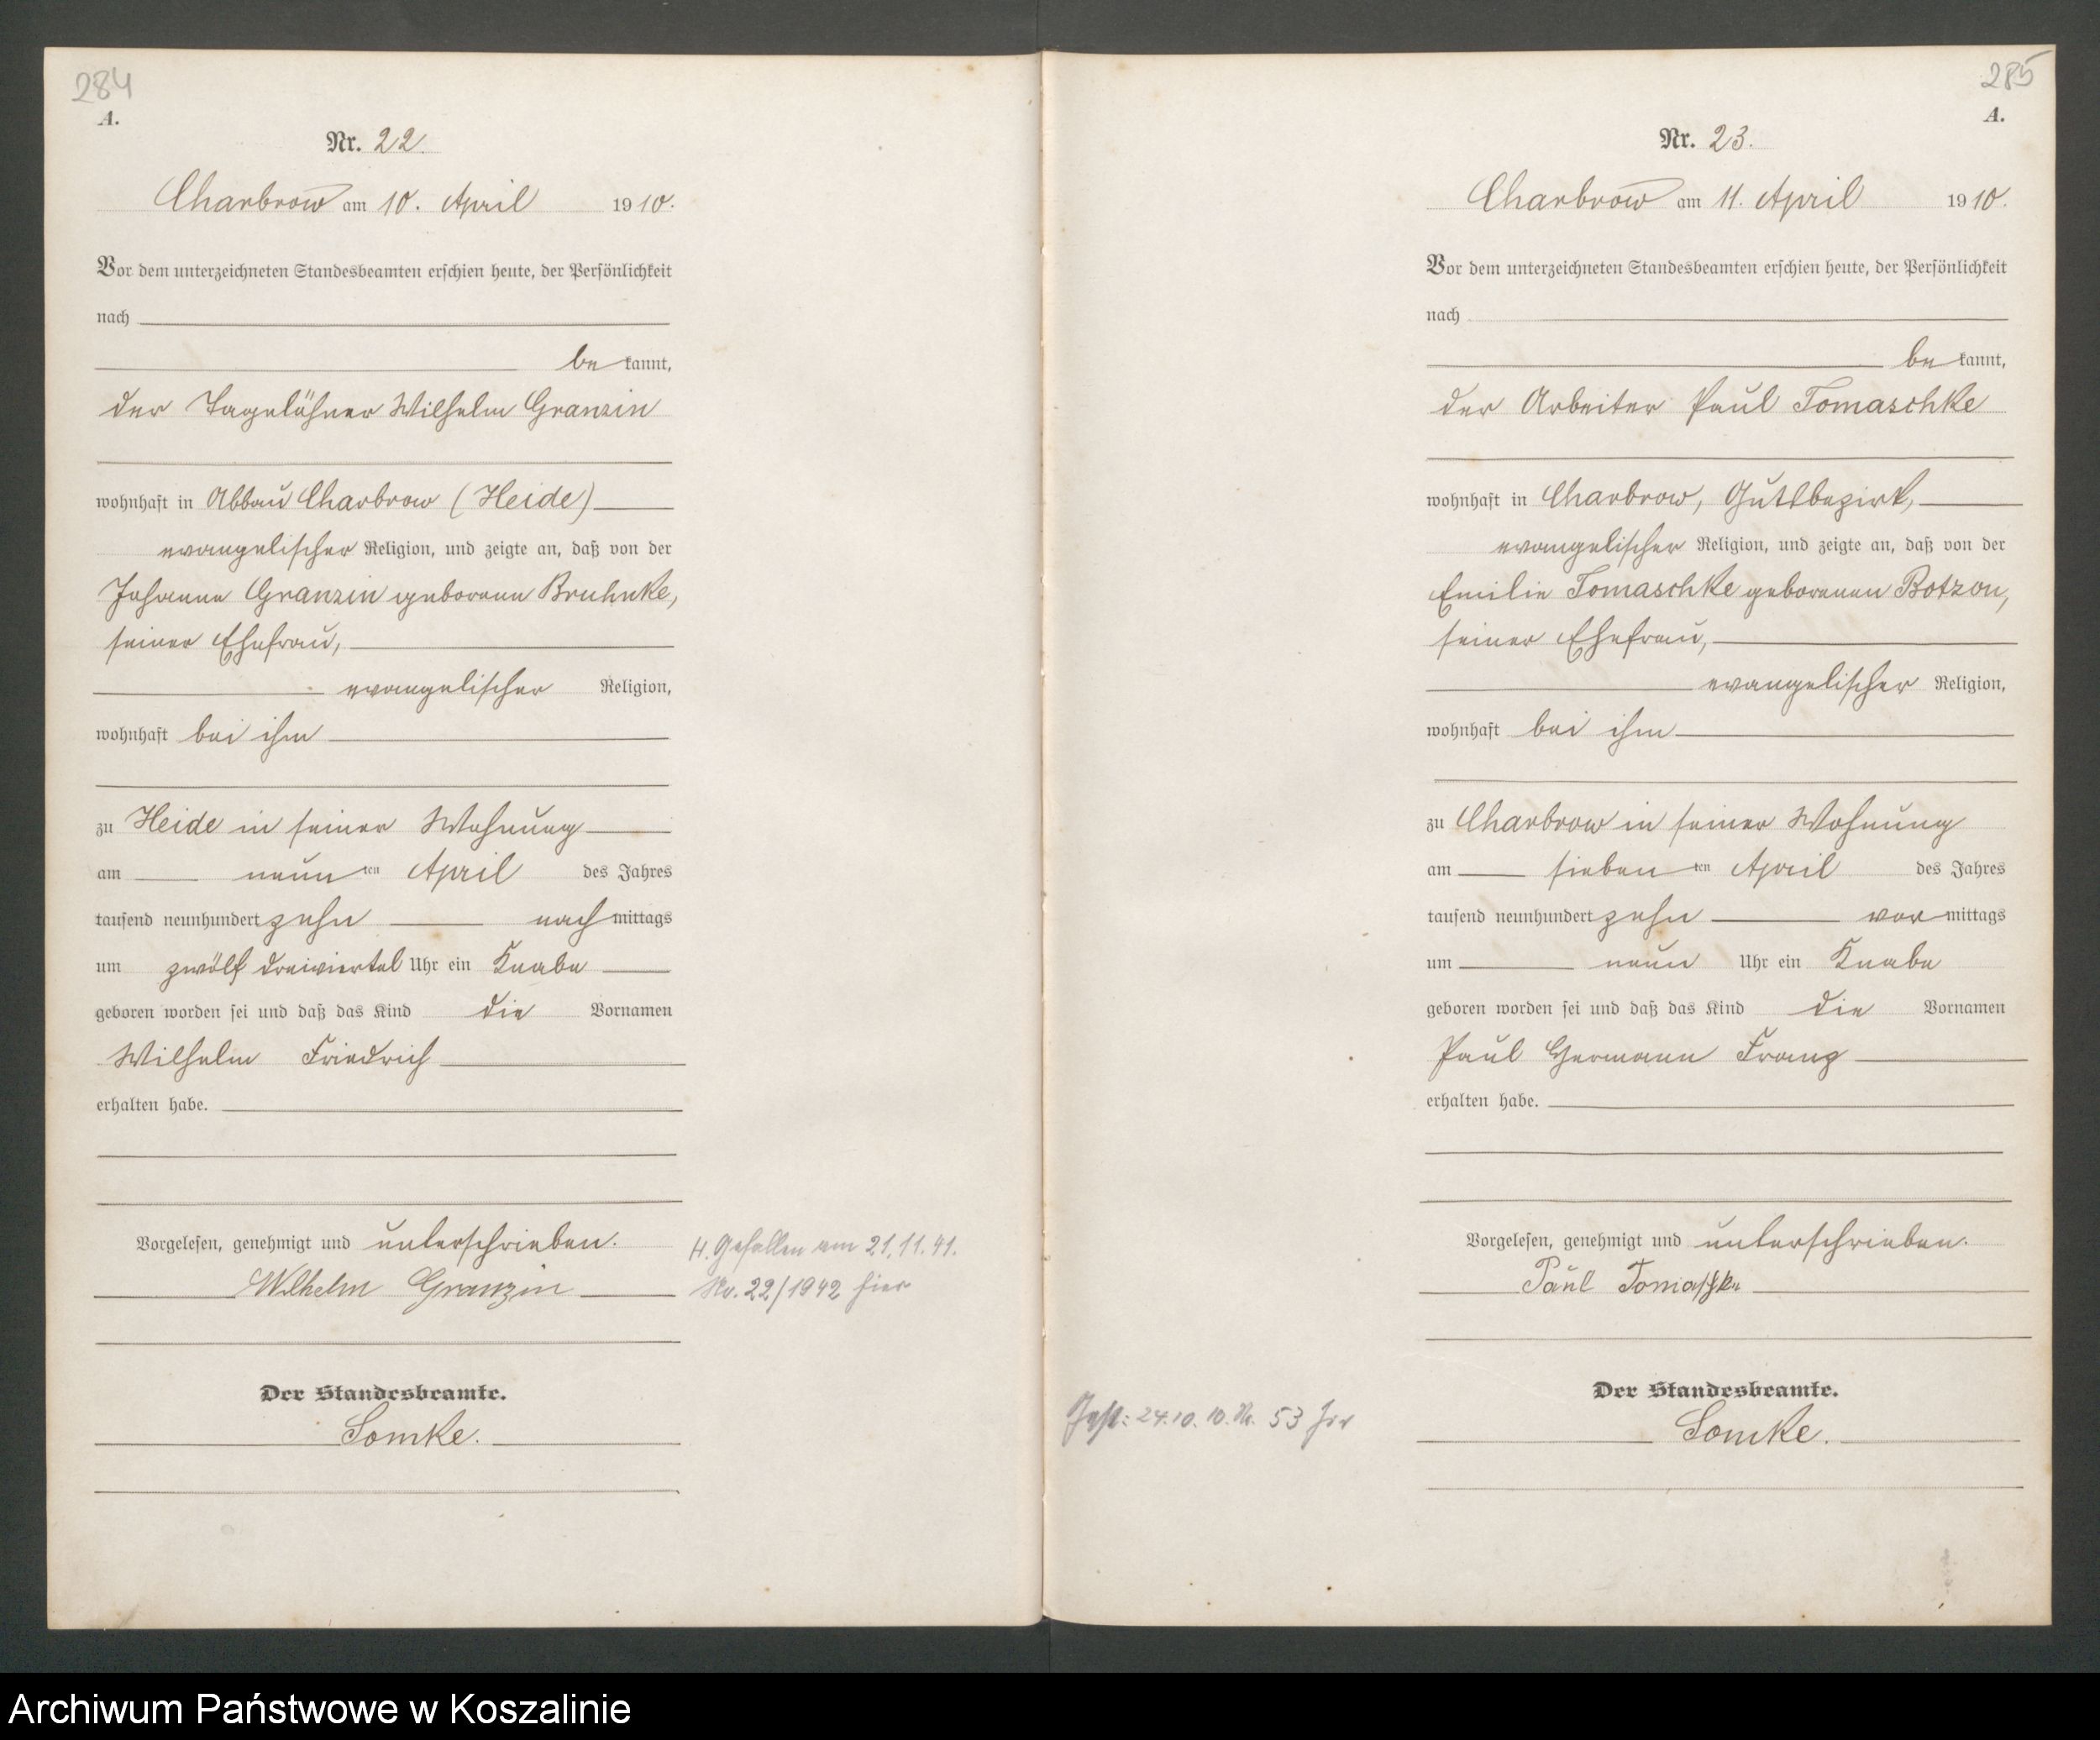 284
A.
Nr. 22.
Charbrow am 10. April 1910.
Vor dem unterzeichneten Standesbeamten erschien heute, der Persönlichkeit
nach
be kannt,
der Tagelöhner Wilhelm Granzin
wohnhaft in Abbau Charbrow (Heide)
evangelischer Religion, und zeigte an, daß von der
Johanne Granzin geborene Bruhnke,
seiner Ehefrau,
evangelischer Religion,
wohnhaft bei ihm
zu Heide in seiner Wohnung
am neun ten April des Jahres
tausend neunhundert zehn nach mittags
um zwölf dreiviertel Uhr ein Knabe
geboren worden sei und daß das Kind die Vornamen
Wilhelm Friedrich
erhalten habe.
Vorgelesen, genehmigt und unterschrieben.
Wilhelm Granzin
Der Standesbeamte.
Lomke.
Gefallen am 21.11.41.
Nr. 22/1942 hier
285
A.
Nr. 23.
Charbrow am 11. April 1910.
Vor dem unterzeichneten Standesbeamten erschien heute, der Persönlichkeit
nach
be kannt,
der Arbeiter Paul Tomaschke
wohnhaft in Charbrow, Gutsbezirk,
evangelischer Religion, und zeigte an, daß von der
Emilie Tomaschke geborenen Botzon,
seiner Ehefrau,
evangelischer Religion,
wohnhaft bei ihm
zu Charbrow in seiner Wohnung
am sieben ten April des Jahres
tausend neunhundert zehn vor mittags
um neun Uhr ein Knabe
geboren worden sei und daß das Kind die Vornamen
Paul Hermann Franz
erhalten habe.
Vorgelesen, genehmigt und unterschrieben.
Paul Tomaschke
Der Standesbeamte.
Lomke.
Gest: 24.10.10. Nr. 53 hier
Archiwum Państwowe w Koszalinie